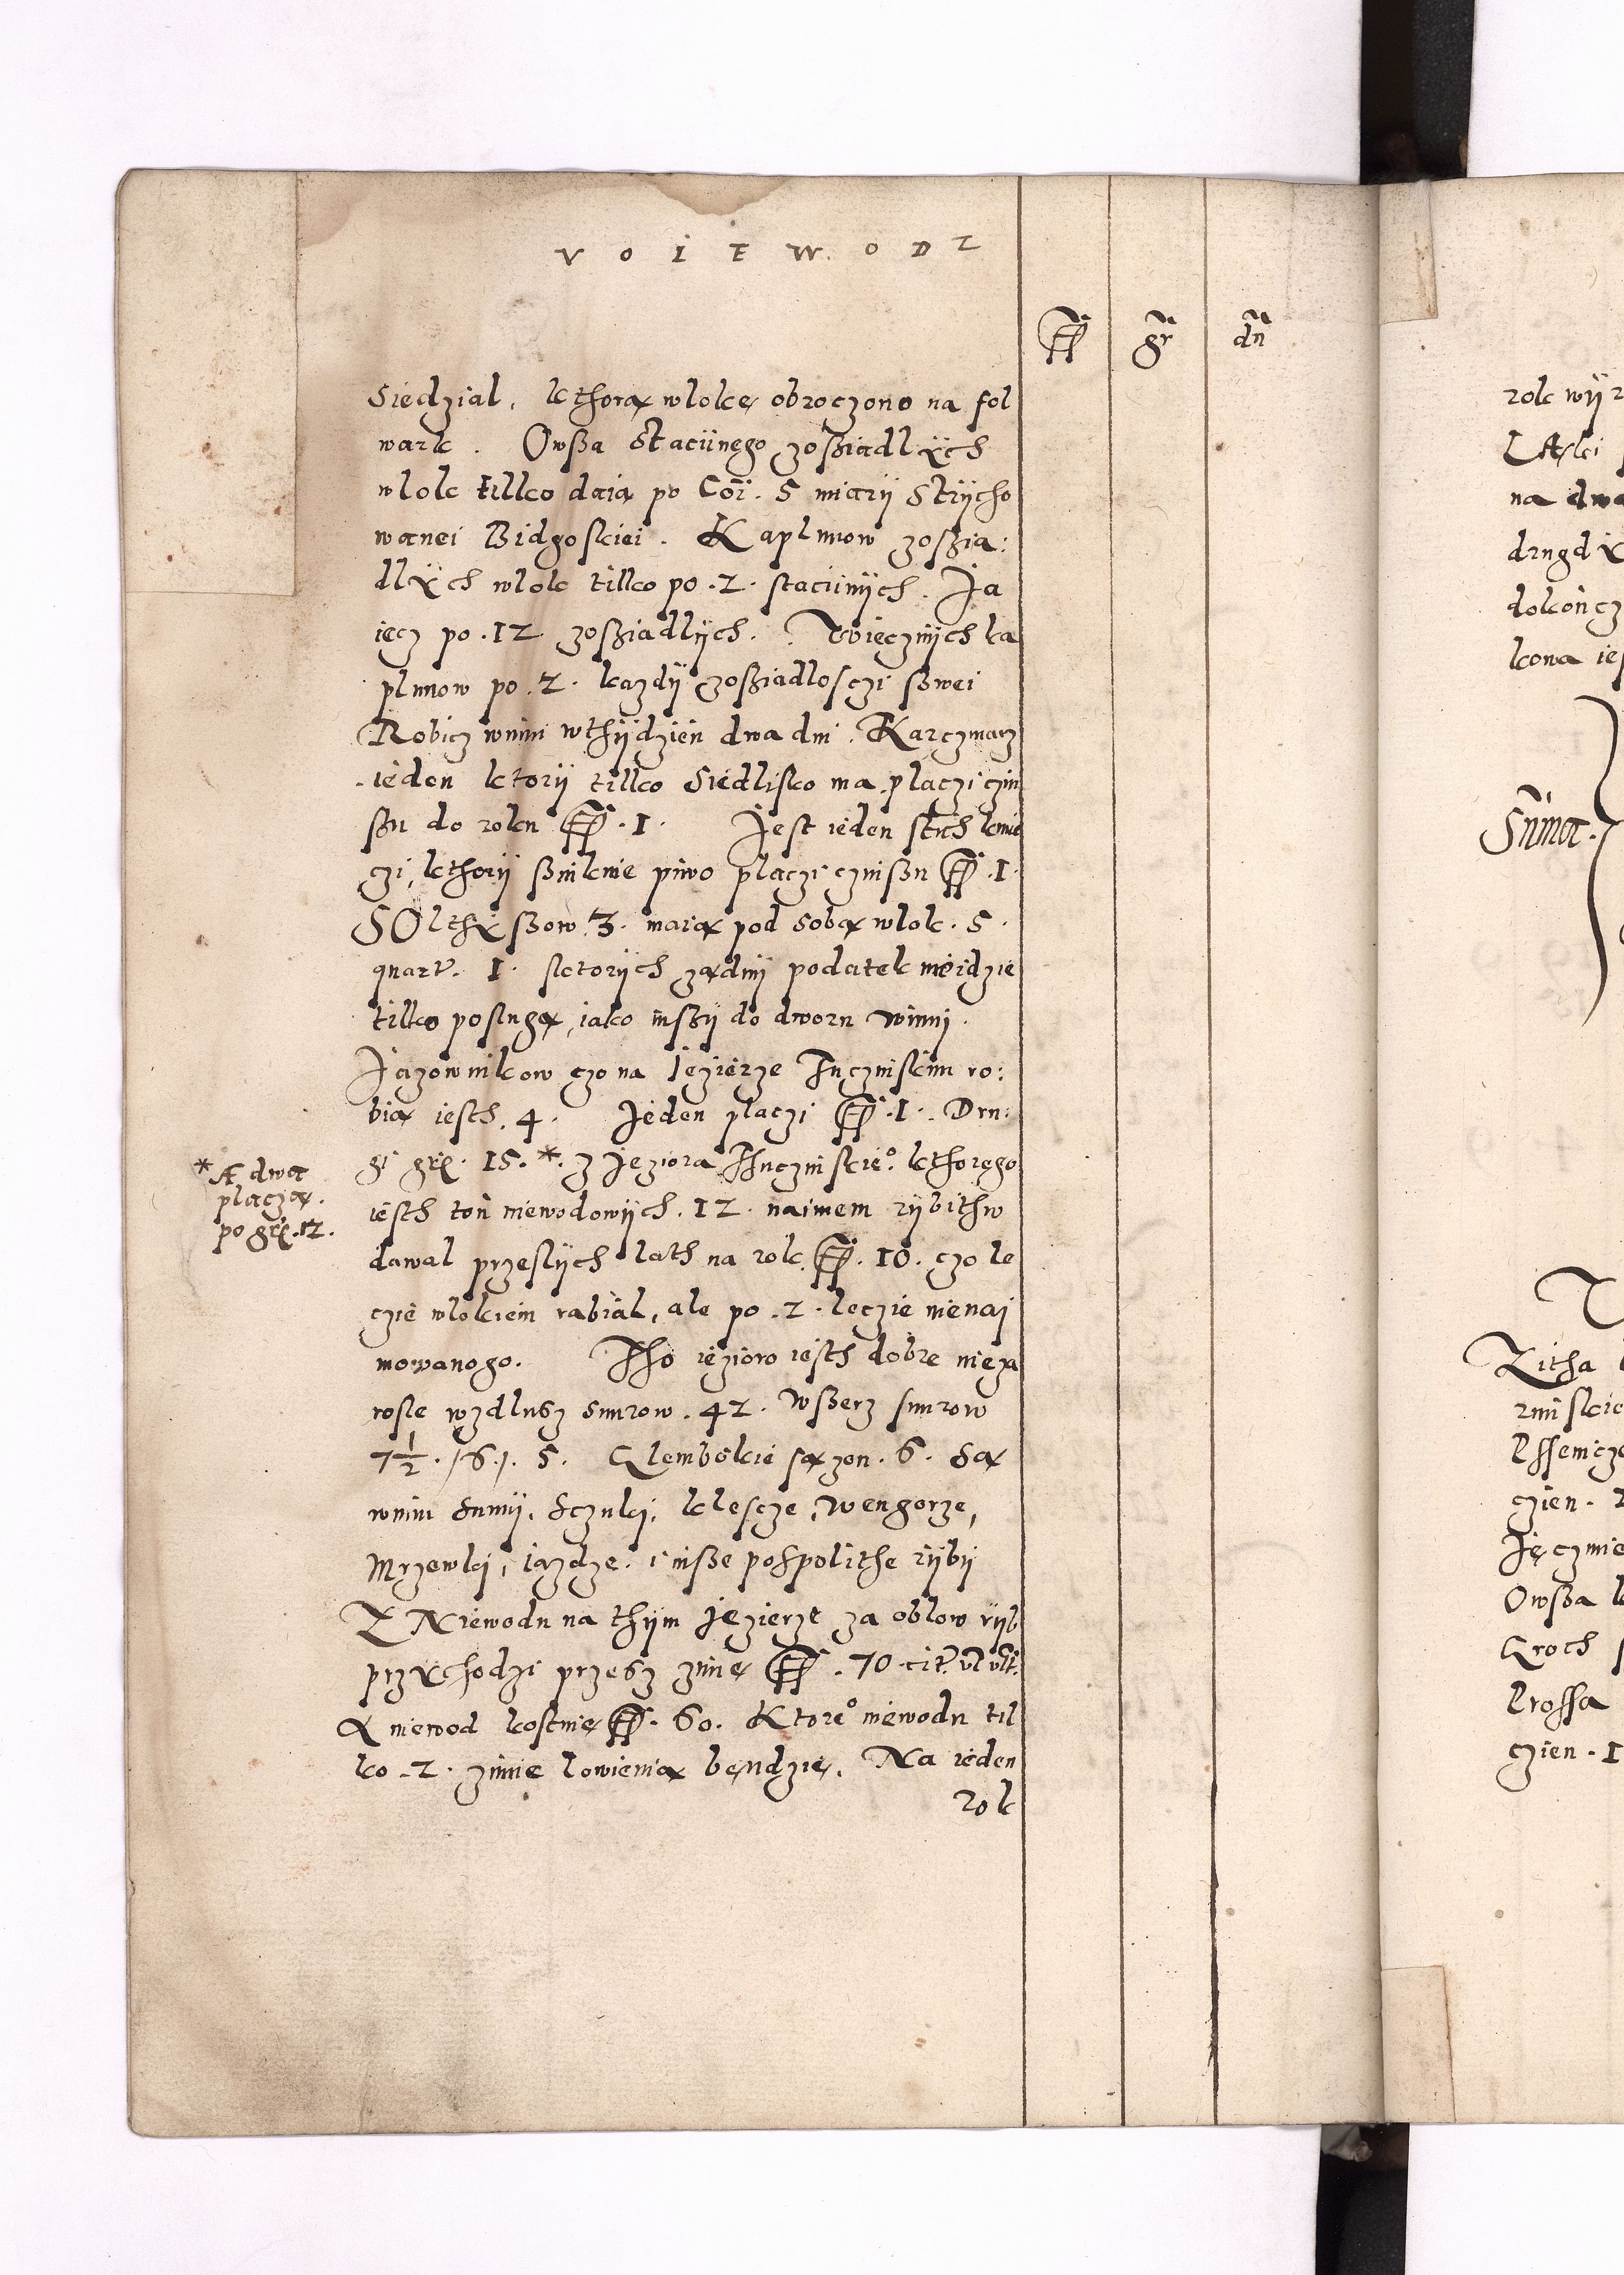 V O I E W O D Z
fl gr dn
Siedzial, kthorą wlokę obroczono na fol
wark. Owßa Staciinego zoßiadlych
wlok tilko daią po Cor. 5 miarÿ Strÿcho
wanei Bidgoskiei. Kaplunow zoßia:
dlych wlok tilko po .2. staciinÿch. Ja
iecz po .12. zoßiadlÿch. Więcznÿch ka
plunow po .2. kazdÿ zoßiadlosczi ßwei
Robicz winni wthÿdzień dwa dni. Karczmarz
ieden ktorÿ tilko Siedlisko ma, placzi czin
ßu do roku fl .1. Jest ieden
czi, kthorÿ ßinkuie piwo placzi czinßu fl .1.
SOlthyßow .3. maią pod sobą wlok .5.
quart. 1. sktorÿch żądnÿ podatek nieidzie
tilko poslugą, iako inßÿ do dworu winni.
Jazownikow czo na Jezierze Tuczniskim ro:
bią iesth .4. Jeden placzi fl .1. Dru:
gi grß. 15.*. z Jeziora Thuczniskie°. kthorego
iesth toń niewodowÿch .12. naimem rÿbithw
dawal przeslÿch lath na rok fl .10. czo le
czie wlokiem rabial, ale po .2. leczie nienai
mowanogo. Tho iezioro iesth dobre nieza
rosle wzdlusz snurow .42. Wßerz snurow
7½. /6/. 5. Glembokie sązon .6. Są
wnim Sumÿ, Sczuki, klescze, Wengorze,
Mrzewki, iazdze. i inße pospolithe rÿbÿ
Z Niewodu na thÿm Jezierze za oblow rÿb
przychodzi przesz zimę fl .70. cit. vl vlt.
A niewod kostuie fl .60. Ktore° niewodu til
ko .2. zimie lowienia bęndzie. Na ieden
rok
* A dwa
placzą.
po grß .12.
rok wÿ
na dwa
drugdy
dokoncz
kona ies
Sūma.
Zitha
czien.
Jęczmie
Owßa
Groch
Prossa
czien. 1